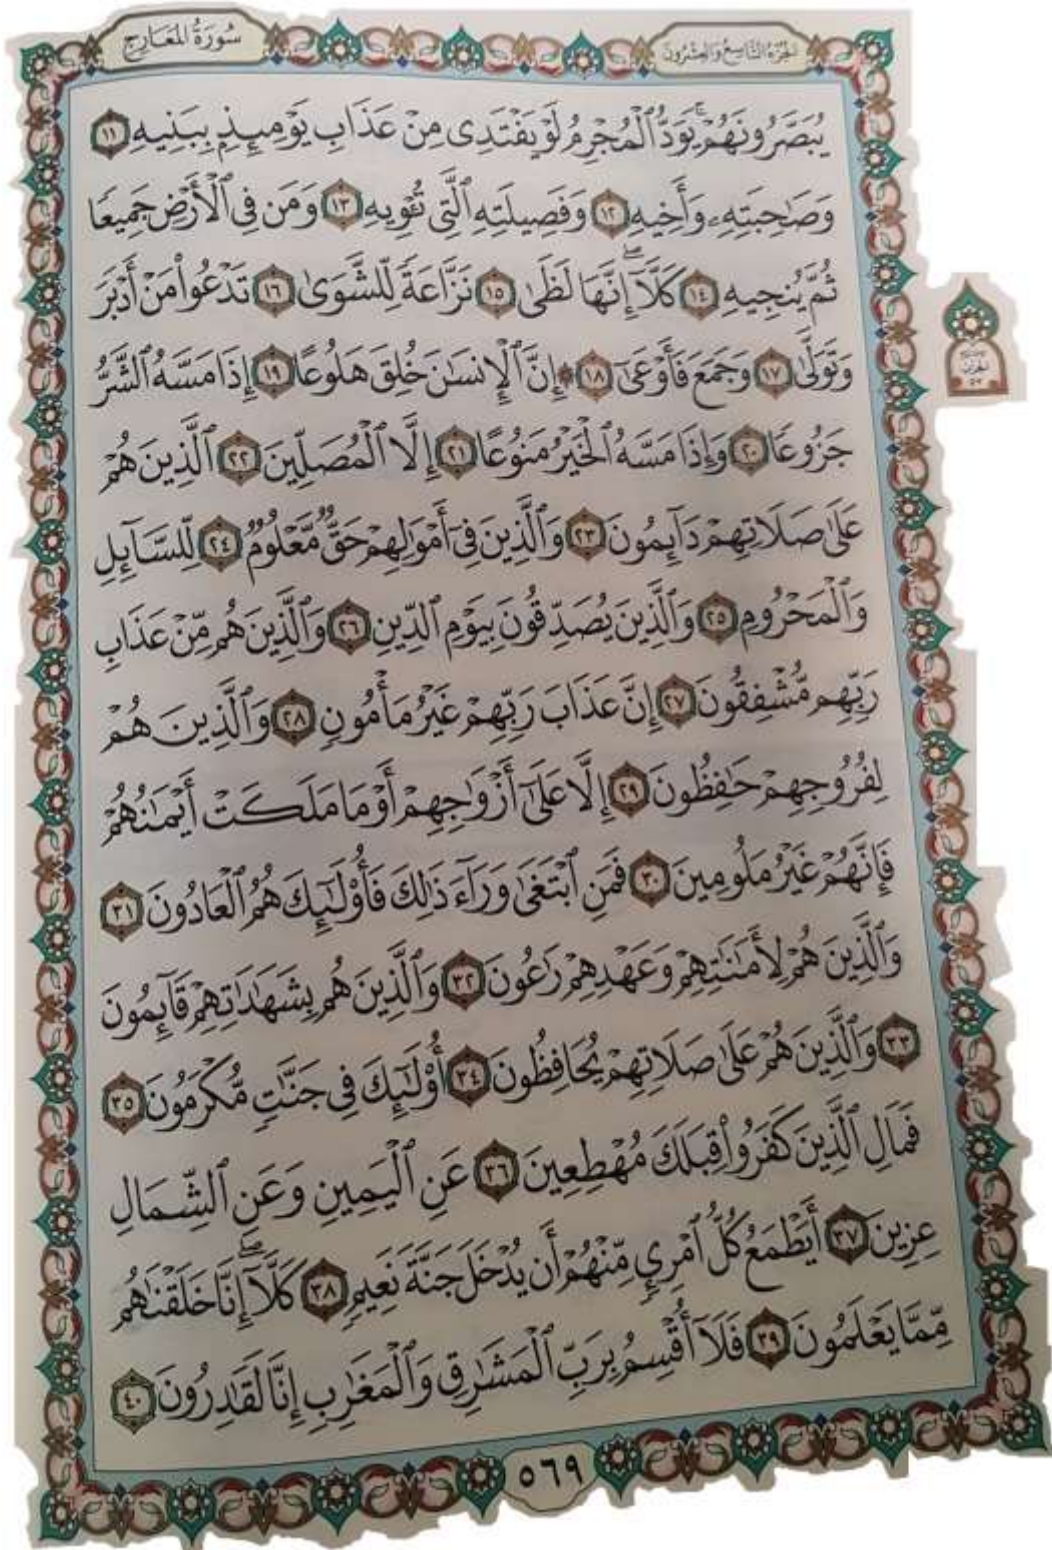 سُورَةُ المَعَارِجِ
الجُزْءُ التَّاسِعُ وَالعِشْرُونَ
يُبَصَّرُونَهُمْۚ يَوَدُّ ٱلْمُجْرِمُ لَوْ يَفْتَدِى مِنْ عَذَابِ يَوْمِئِذِۭ بِبَنِيهِ ١١
وَصَٰحِبَتِهِۦ وَأَخِيهِ ١٢ وَفَصِيلَتِهِ ٱلَّتِى تُـْٔوِيهِ ١٣ وَمَن فِى ٱلْأَرْضِ جَمِيعًا
ثُمَّ يُنجِيهِ ١٤ كَلَّآۖ إِنَّهَا لَظَىٰ ١٥ نَزَّاعَةً لِّلشَّوَىٰ ١٦ تَدْعُوا۟ مَنْ أَدْبَرَ
وَتَوَلَّىٰ ١٧ وَجَمَعَ فَأَوْعَىٰٓ ١٨ ۞ إِنَّ ٱلْإِنسَٰنَ خُلِقَ هَلُوعًا ١٩ إِذَا مَسَّهُ ٱلشَّرُّ
جَزُوعًا ٢٠ وَإِذَا مَسَّهُ ٱلْخَيْرُ مَنُوعًا ٢١ إِلَّا ٱلْمُصَلِّينَ ٢٢ ٱلَّذِينَ هُمْ
عَلَىٰ صَلَاتِهِمْ دَآئِمُونَ ٢٣ وَٱلَّذِينَ فِىٓ أَمْوَٰلِهِمْ حَقٌّ مَّعْلُومٌ ٢٤ لِّلسَّآئِلِ
وَٱلْمَحْرُومِ ٢٥ وَٱلَّذِينَ يُصَدِّقُونَ بِيَوْمِ ٱلدِّينِ ٢٦ وَٱلَّذِينَ هُم مِّنْ عَذَابِ
رَبِّهِم مُّشْفِقُونَ ٢٧ إِنَّ عَذَابَ رَبِّهِمْ غَيْرُ مَأْمُونٍ ٢٨ وَٱلَّذِينَ هُمْ
لِفُرُوجِهِمْ حَٰفِظُونَ ٢٩ إِلَّا عَلَىٰٓ أَزْوَٰجِهِمْ أَوْ مَا مَلَكَتْ أَيْمَٰنُهُمْ
فَإِنَّهُمْ غَيْرُ مَلُومِينَ ٣٠ فَمَنِ ٱبْتَغَىٰ وَرَآءَ ذَٰلِكَ فَأُو۟لَٰٓئِكَ هُمُ ٱلْعَادُونَ ٣١
وَٱلَّذِينَ هُمْ لِأَمَٰنَٰتِهِمْ وَعَهْدِهِمْ رَٰعُونَ ٣٢ وَٱلَّذِينَ هُم بِشَهَٰدَٰتِهِمْ قَآئِمُونَ
٣٣ وَٱلَّذِينَ هُمْ عَلَىٰ صَلَاتِهِمْ يُحَافِظُونَ ٣٤ أُو۟لَٰٓئِكَ فِى جَنَّٰتٍ مُّكْرَمُونَ ٣٥
فَمَالِ ٱلَّذِينَ كَفَرُوا۟ قِبَلَكَ مُهْطِعِينَ ٣٦ عَنِ ٱلْيَمِينِ وَعَنِ ٱلشِّمَالِ
عِزِينَ ٣٧ أَيَطْمَعُ كُلُّ ٱمْرِئٍ مِّنْهُمْ أَن يُدْخَلَ جَنَّةَ نَعِيمٍ ٣٨ كَلَّآۖ إِنَّا خَلَقْنَٰهُم
مِّمَّا يَعْلَمُونَ ٣٩ فَلَآ أُقْسِمُ بِرَبِّ ٱلْمَشَٰرِقِ وَٱلْمَغَٰرِبِ إِنَّا لَقَٰدِرُونَ ٤٠
٥٦٩